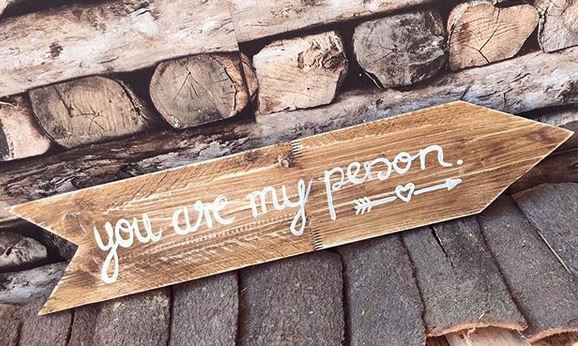 you are my person.